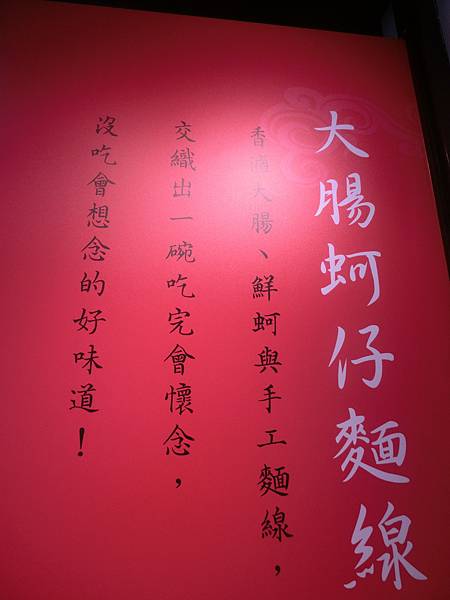 大腸蚵仔麵線
香滷大腸、鮮蚵與手工麵線，
交織出一碗吃完會懷念，
沒吃會想念的好味道！